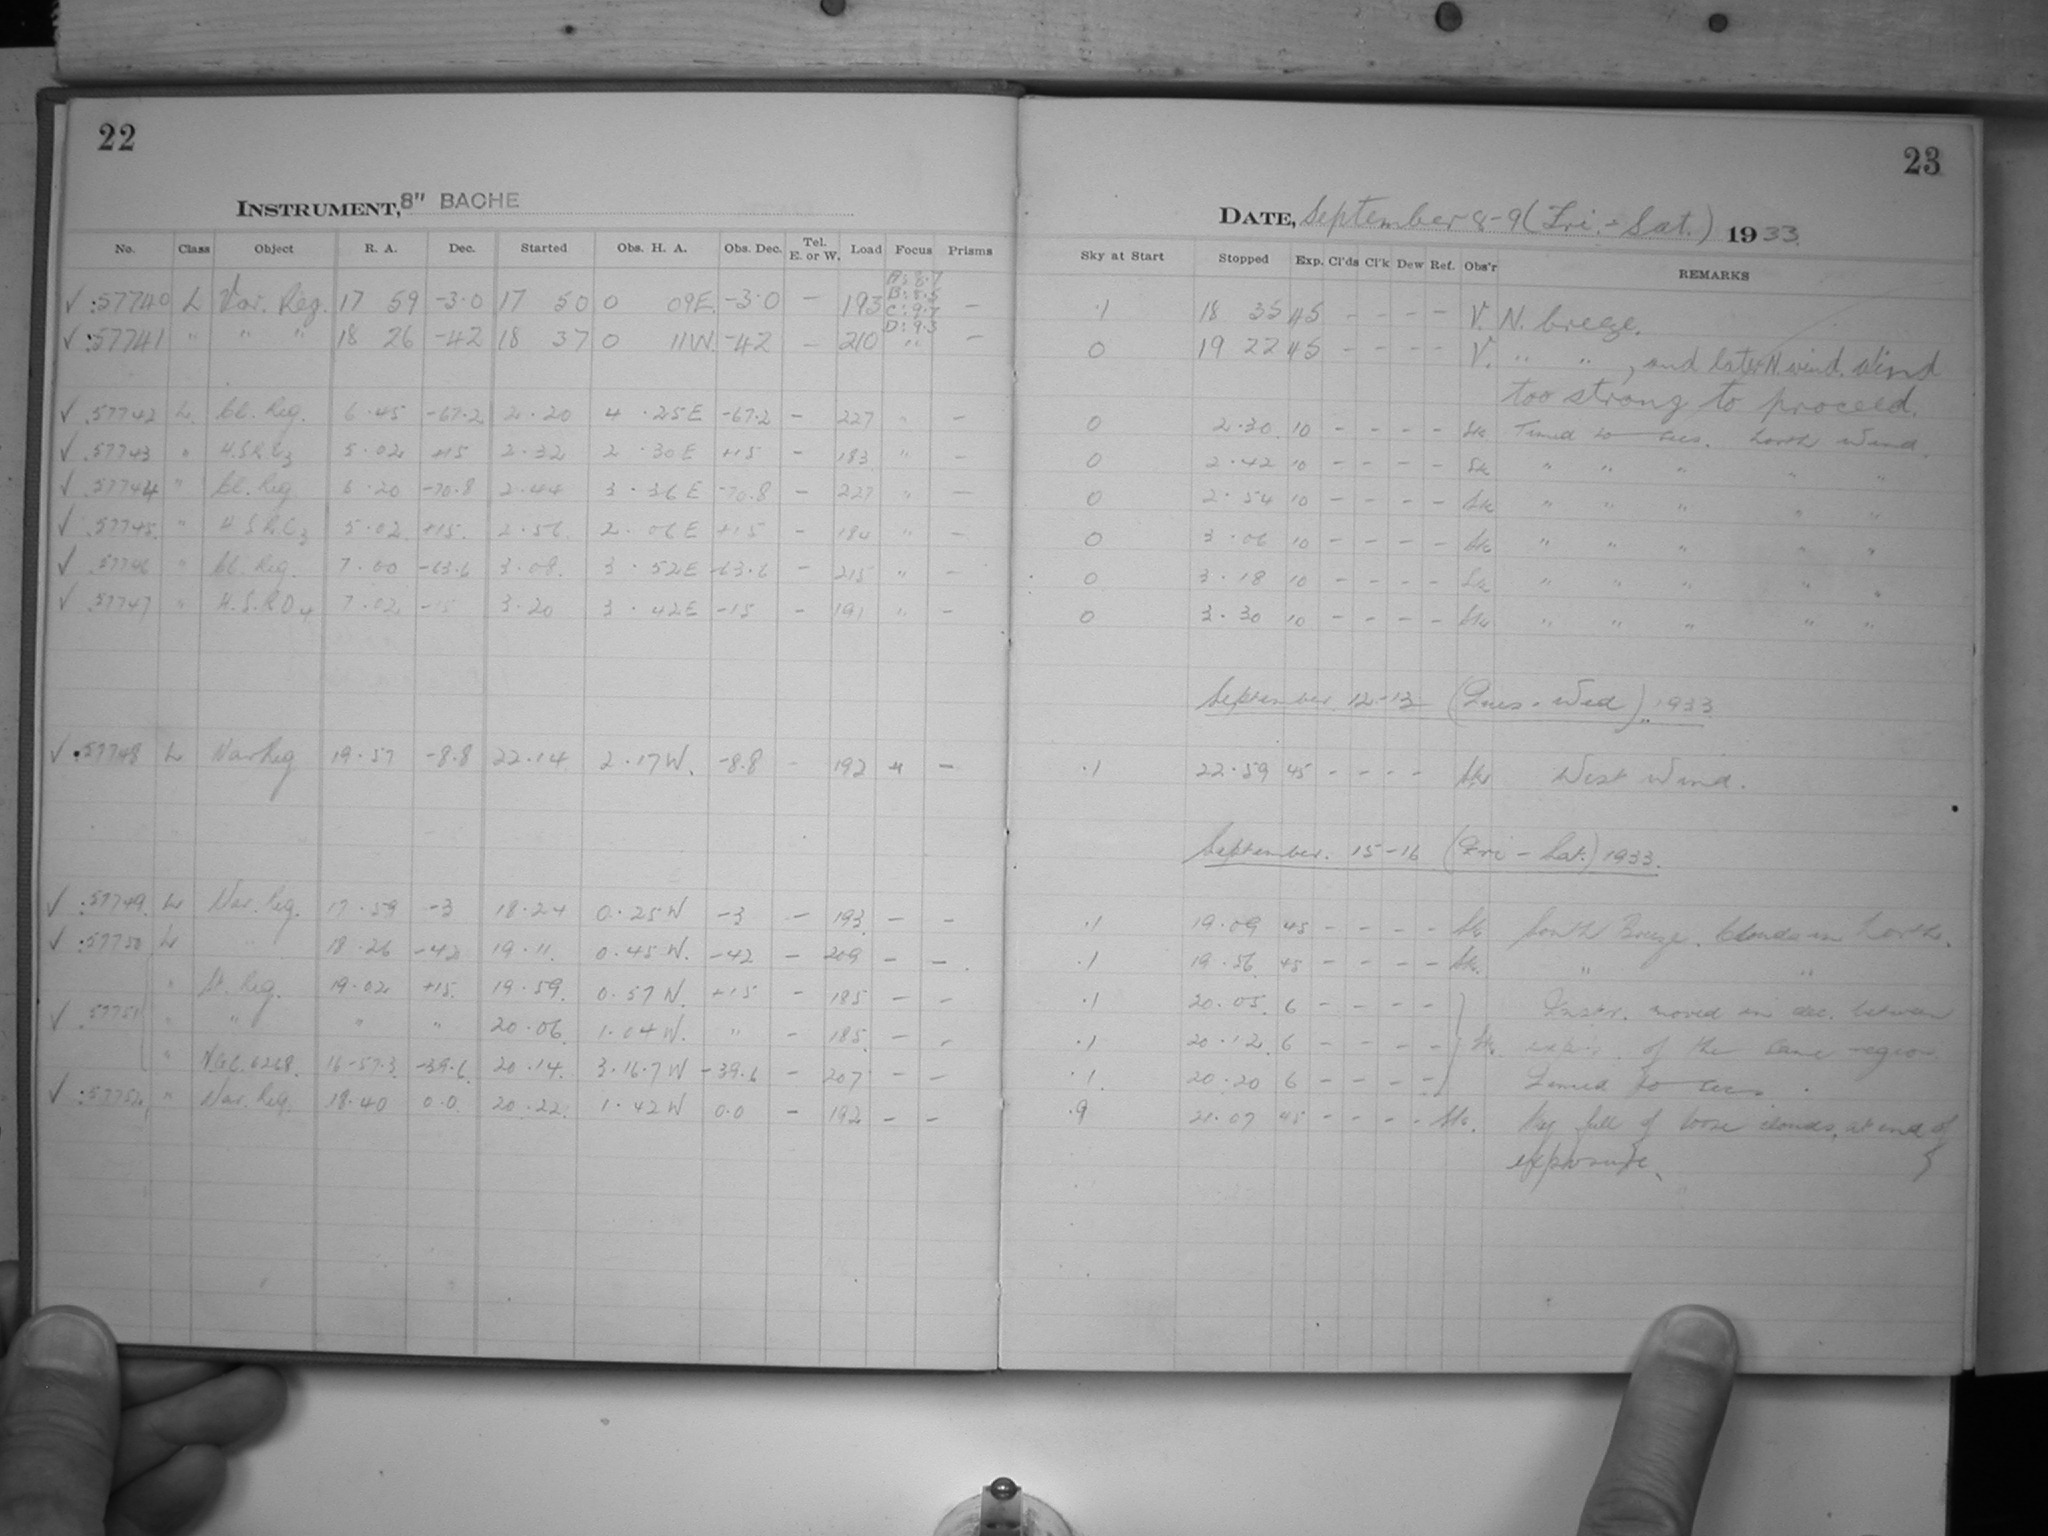 22
INSTRUMENT, 8" BACHE
No. Class Object R. A. Dec. Started Obs. H. A. Obs. Dec. Tel. E. or W. Load Focus Prisms
A: 8.7
B: 8.5
C: 9.7
D: 9.3
√ :57740 L Var. Reg. 17 59 -3.0 17 50 0 09E -3.0 — 193 —
√ :57741 " " " 18 26 -42 18 37 0 11W. -42 — 210 " —
√ .57742 L Cl. Reg. 6.45 -67.2 2.20 4.25E -67.2 — 227 " —
√ .57743 " H.S.R.C3 5.02 +15 2.32 2.30E +15 — 183 " —
√ .57744 " Cl. Reg 6.20 -70.8 2.44 3.36E -70.8 — 227 " —
√ .57745 " H.S.R.C3 5.02 +15. 2.56 2.06E +15 — 184 " —
√ .57746 " Cl. Reg. 7.00 -63.6 3.08. 3.52E -63.6 — 215 " —
√ .57747 " H.S.R D4 7.02 -15 3.20 3.42E -15 — 191 " —
√ .57748 L Var Reg 19.57 -8.8 22.14 2.17W. -8.8 — 192 " —
√ :57749. L Var. Reg. 17.59 -3 18.24 0.25W -3 — 193 — —
√ :57750 L " 18.26 -42 19.11. 0.45W. -42 — 209 — —
" St. Reg. 19.02 +15. 19.59. 0.57W. +15 — 185 — —
√ .57751 " " " " 20.06. 1.04W. " — 185. — —
" N.G.C. 6268. 16-57.3 -39.6 20.14. 3.16.7W -39.6 — 207 — —
√ :57752 " Var. Reg. 18.40 0.0 20.22. 1.42W 0.0 — 192 — —
23
DATE, September 8-9 (Fri. - Sat.) 1933
Sky at Start Stopped Exp. Cl'ds Cl'k Dew Ref. Obs'r REMARKS
.1 18 35 45 — — — — V. N. breeze.
0 19 22 45 — — — — V. " " , and later N. wind. Wind
too strong to proceed.
0 2.30 10 — — — — Timed 10 secs. North Wind.
0 2.42 10 — — — — " " " " "
0 2.54 10 — — — — " " " " "
0 3.06 10 — — — — " " " " "
0 3.18 10 — — — — " " " " "
0 3.30 10 — — — — " " " " "
September 12-13 (Tues - Wed) 1933
.1 22.59 45 — — — — West Wind.
September. 15-16 (Fri - Sat.) 1933.
.1 19.09 45 — — — — South Breeze. Clouds in North.
.1 19.56 45 — — — — " "
.1 20.05. 6 — — — — Instr. moved in dec. between
.1 20.12. 6 — — — — exp's. of the same region
.1 20.20 6 — — — — Timed secs.
.9 21.07 45 — — — — Sky full of loose clouds, at end of
exposure.